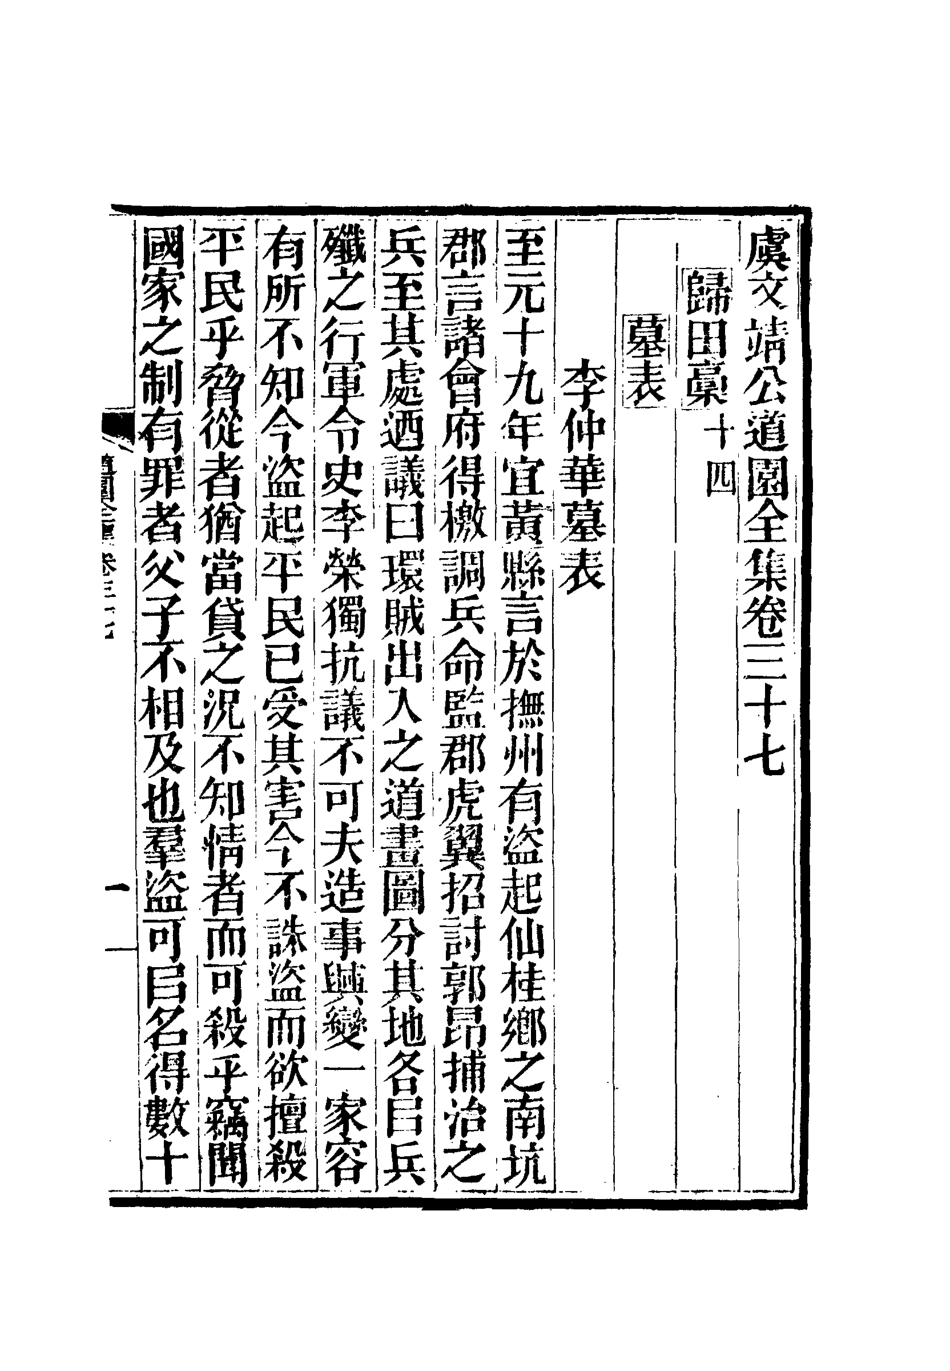 虞文靖公道園全集卷三十七
歸田稾十四
墓表
李仲華墓表
至元十九年宜黃縣言於撫州有盜起仙桂鄉之南坑
郡言諸會府得檄調兵命監郡虎翼招討郭昂捕治之
兵至其處迺議曰環賊出入之道畫圖分其地各㠯兵
殲之行軍令史李榮獨抗議不可夫造事興變一家容
有所不知今盜起平民已受其害今不誅盜而欲擅殺
平民乎脅從者猶當貸之況不知情者而可殺乎竊聞
國家之制有罪者父子不相及也羣盜可㠯名得數十
道園全集 卷三十七
一